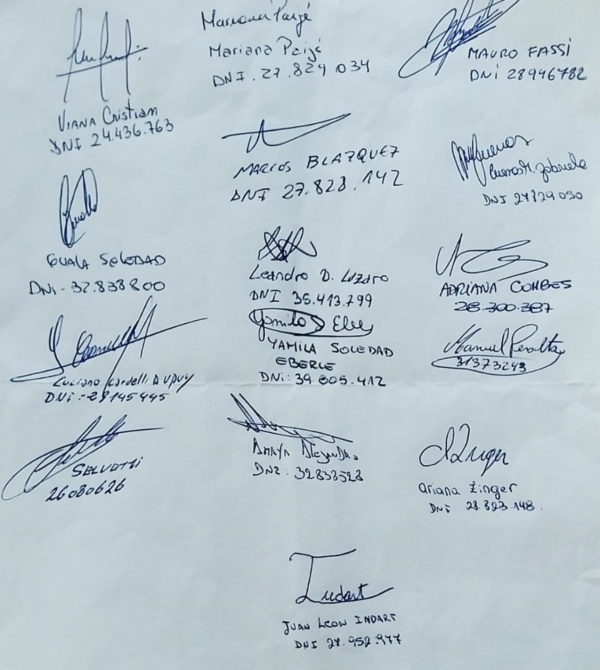 Viana Cristian
DNI 24.436.763
Mariana Paijé
Mariana Paijé
DNI. 27.824 034
MAURO FASSI
DNI 28946782
MARCOS BLAZQUEZ
DNI 27.828.142
Bueno M. Gabriela
DNI 27829050
GUALA SOLEDAD
DNI - 32.838800
Leandro D. Lazaro
DNI 35.413.799
ADRIANA COMBES
28.300.387
Yamila S Eberle
YAMILA SOLEDAD
EBERLE
DNI: 39.605.412
Manuel Peralta
31373243
Luciano Cardelli Dupuy
DNI - 28145445
SALVOTTI
26080626
AMAYA Alejandro
DNI: 32838528
Ariana Zinger
DNI 28.823.148.
Indart
JUAN LEON INDART
DNI 27.952.977